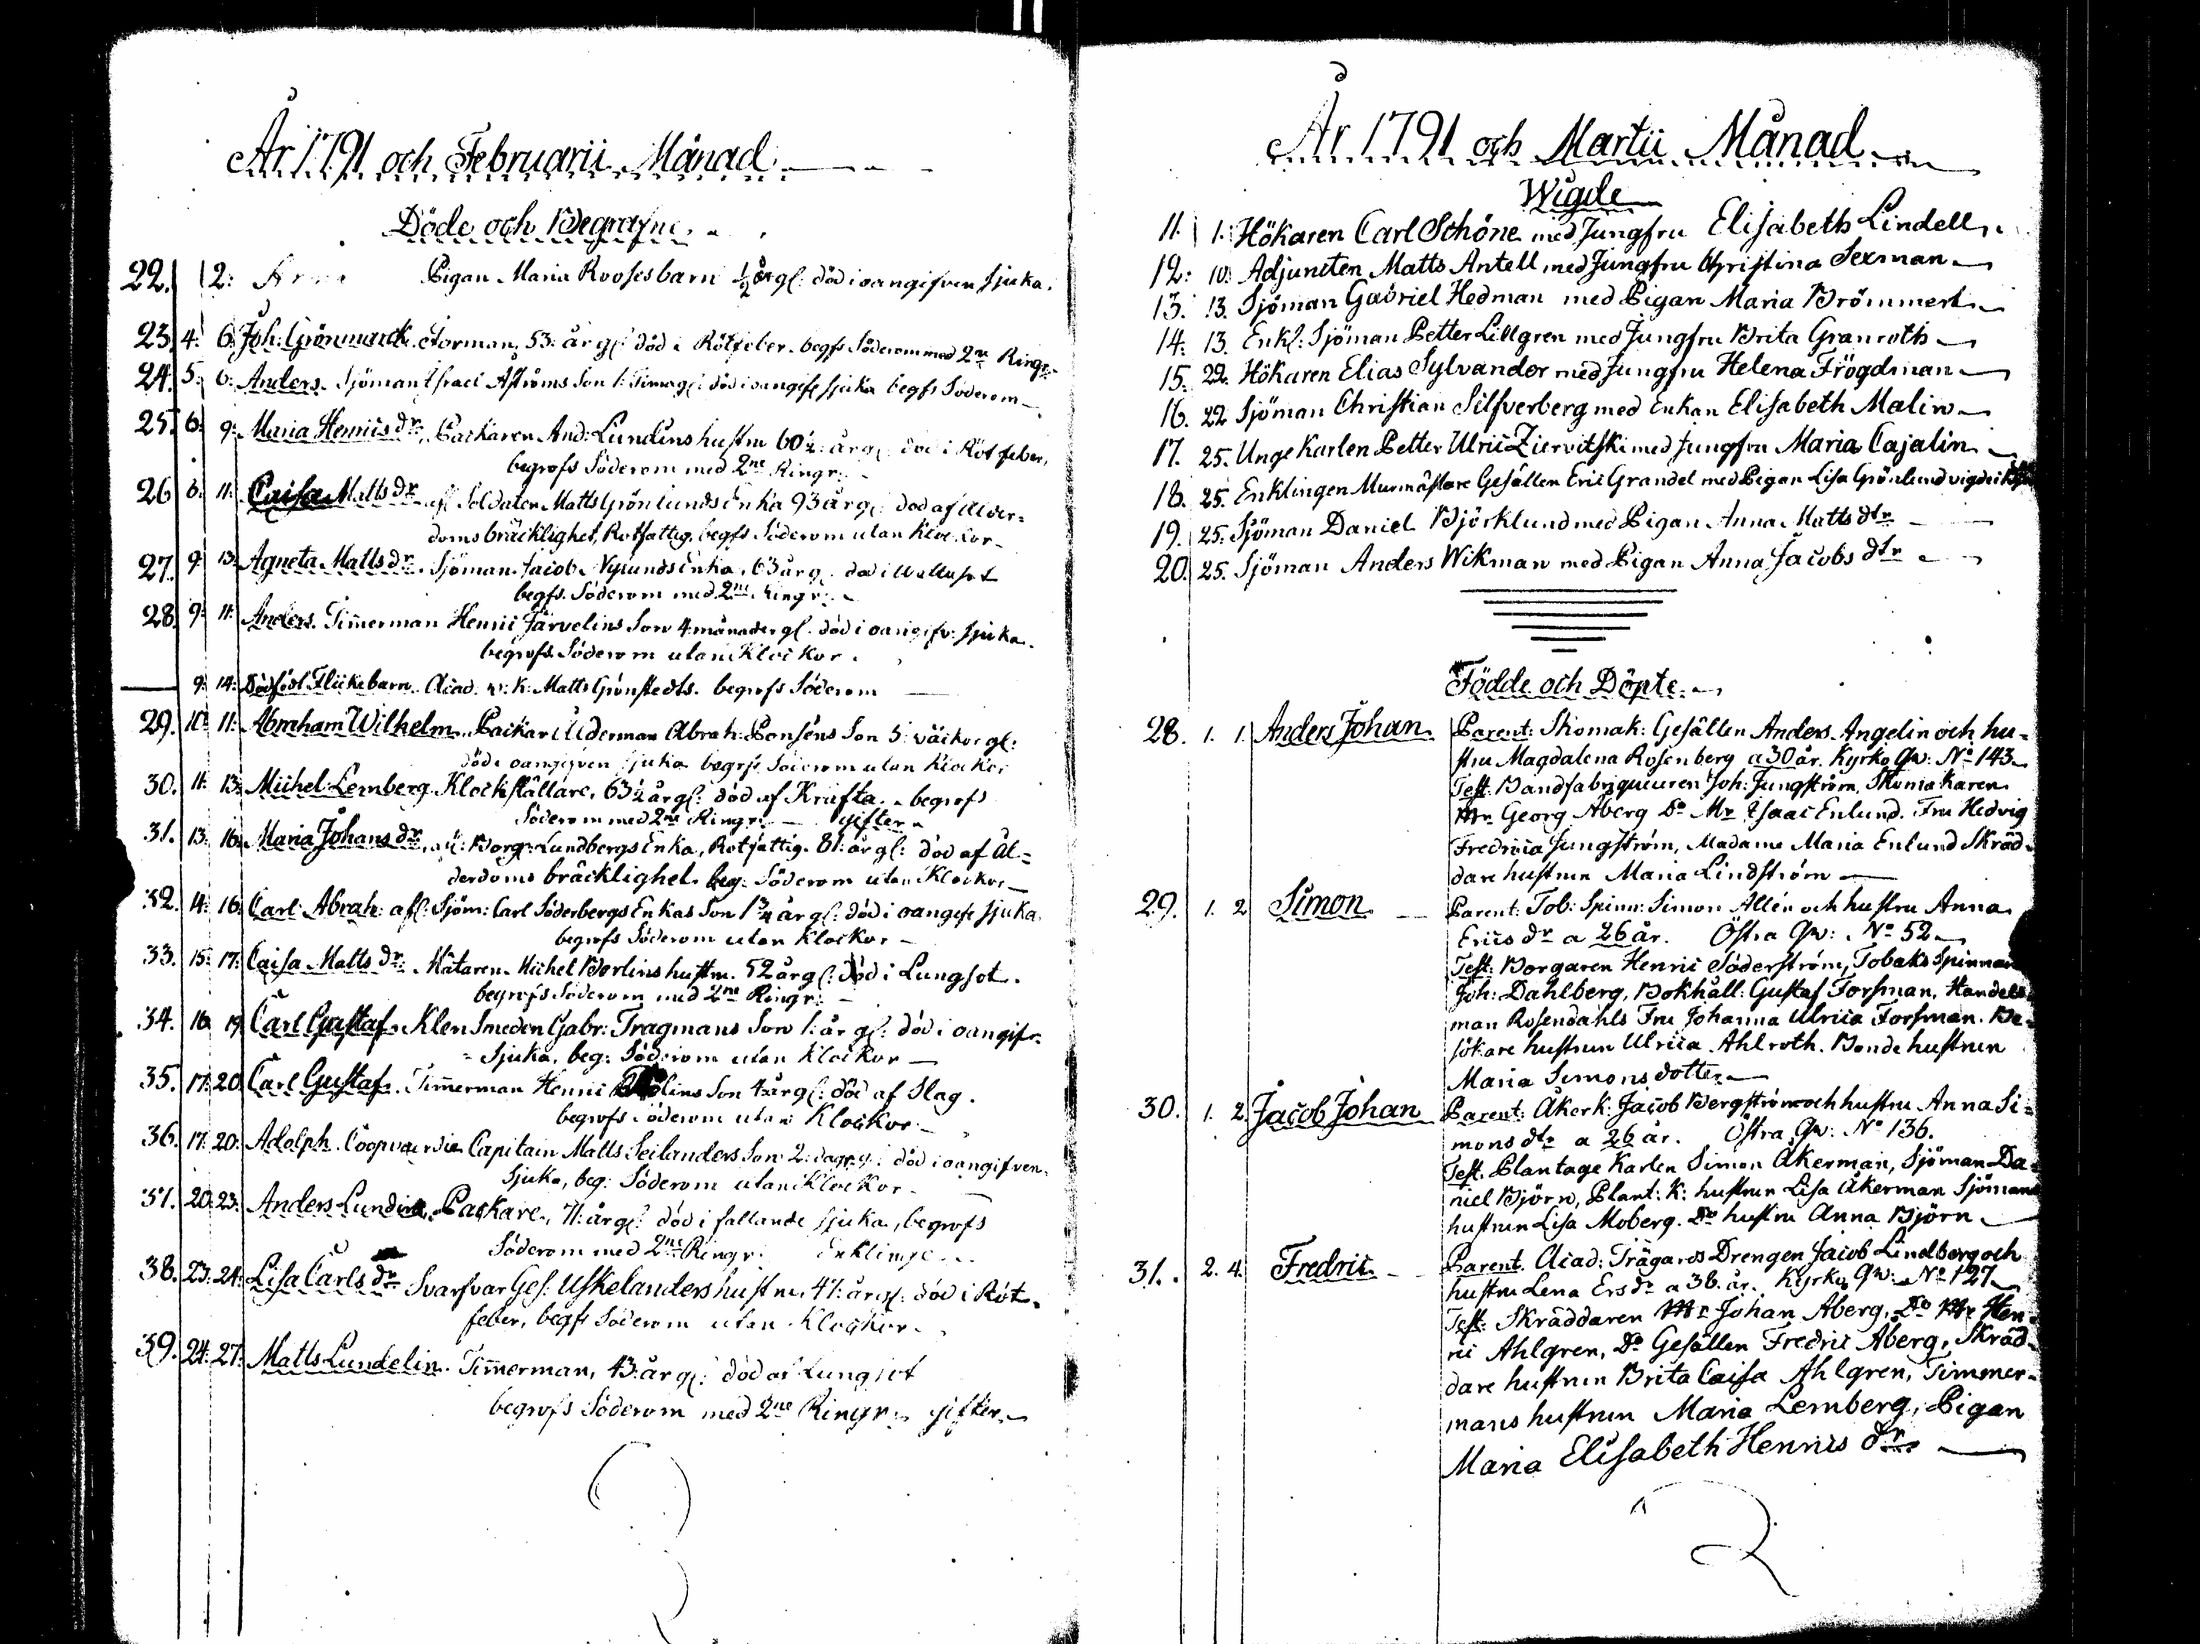 År 1791 och Februarii Månad
Döde och Begrafne
22. 2: Pigan Maria Rooses barn ½ år gl: död i oangifven sjuka.
23. 4: 6: Joh: Grönmarck Storman, 53: år gl: död i Rötfeber. begfs Söderom med 2ne Ringr:
24. 5: 6: Anders. Sjöman Israel Aströms Son 1: Tima gl: död i oangifs sjuka begfs Söderom
25. 6: 9: Maria Henrics dr. Packaren And: Lundins hustru 60½: år gl: död i Röt feber,
begrafs Söderom med 2ne Ringr:
26. 8: 11: Caisa Matts dr afl Soldaten Matts Grönlunds Enka 93 år gl: död af Ålder=
doms bräcklighet, Rotfattig. begfs Söderom utan Klockor
27. 9: 13: Agneta Matts dr. Sjöman Jacob Nylunds Enka, 63 år gl: död i Wattusot
begfs. Söderom med 2ne Ringr:
28. 9: 11: Anders. Timmerman Henric Järvelins Son 4 månader gl: död i oangifv: sjuka.
begrofs Söderom utan Klockor.
9: 14: Dödfödt Flickebarn. Acad. w: k: Matts Grönstedts. begrofs Söderom
29. 10: 11: Abraham Wilhelm. Packar Ålderman Abrah: Ponséns Son 5: väckor gl:
död i oangifven sjuka begrfs Söderom utan Klockor
30. 11: 13: Michel Lemberg. Klockställare, 63½ år gl: död af Kräfta. begrofs
Söderom med 2ne Ringr: gifter
31. 13: 16: Maria Johans dr, afl: Borg: Lundbergs Enka, Rotfattig. 81: år gl: död af Ål=
derdoms bräcklighet. beg: Söderom utan Klockor
32. 14: 16: Carl Abrah: afl: Sjöm: Carl Söderbergs Enkas Son 1¾ år gl: död i oangifs sjuka.
begrofs Söderom utan Klockor
33. 15: 17: Caisa Matts dr: Mätaren Michel Berlins hustru. 52 år gl: död i Lungsot.
begrofs Söderom med 2ne Ringr:
34. 16: 19: Carl Gustaf. Klen Smeden Gabr: Tragmans Son 1: år gl: död i oangifv
= Sjuka, beg: Söderom utan Klockor
35. 17: 20: Carl Gustaf. Timmerman Henric Son 4 år gl: död af Slag.
begrofs Söderom utan Klockor
36. 17: 20: Adolph. Coopvaerdie Capitain Matts Seilanders Son 2: dagr gl: död i oangifven
Sjuka, beg: Söderom utan Klockor
37. 20: 23: Anders Lundin. Packare, 71: år gl: död i fallande sjuka, begrofs
Söderom med 2ne Ringr: Enklinge
38. 23: 24: Lisa Carls dr Svarfvar Ges: Uskelanders hustru, 47: år gl: död i Röt
feber, begfs Söderom utan Klockor.
39. 24: 27: Matts Lundelin. Timmerman, 43: år gl: död af Lungsot
begrofs Söderom med 2ne Ringr: gifter
År 1791 och Martii Månad
Wigde
11. 1: Hökaren Carl Schöne med Jungfru Elisabeth Lindell.
12: 10: Adjuncten Matts Antell med Jungfru Christina Sexman
13. 13. Sjöman Gabriel Hedman med Pigan Maria Brömmert
14: 13. Enkl: Sjöman Petter Lillgren med Jungfru Brita Granroth
15. 22. Hökaren Elias Sylvander med Jungfru Helena Frögdman
16. 22. Sjöman Christian Silfverberg med Enkan Elisabeth Malin
17. 25. Unge Karlen Petter Ulric Ziervitski med Jungfru Maria Cajalin
18. 25. Enklingen Murmästare Gesällen Eric Grandel med Pigan Lisa Grönlund vigde i
19. 25: Sjöman Daniel Björklund med Pigan Anna Matts dtr
20. 25. Sjöman Anders Wikman med Pigan Anna Jacobs dtr
Födde och Döpte
28. 1. 1. Anders Johan. Parent: Skomak: Gesällen Anders Angelin och hu=
stru Magdalena Rosenberg a 30 år. Kyrko Qw: No 143
Test: Bandfabriqueuren Joh: Jungström, Skomakaren
Mr Georg Åberg Do Mr Isaac Enlund. Fru Hedvig
Fredrica Jungström, Madame Maria Enlund Skräd=
dare hustrun Maria Lindström
29. 1. 2. Simon. Parent: Tob: Spinn: Simon Allén och hustru Anna
Erics dr a 26 år. Östra Qw: No 52
Test: Borgaren Henric Söderström, Tobaks Spinnaren
Joh: Dahlberg, Bokhåll: Gustaf Forsman, Handels
man Rosendahls Fru Johanna Ulrica Forsman. Be=
sökare hustrun Ulrica Ahlroth. Bonde hustrun
Maria Simons dotter
30. 1. 2. Jacob Johan Parent: Åker k: Jacob Bergström och hustru Anna Si=
mons dtr a 26 år. Östra Qw: No 136.
Test: Plantage Karlen Simon Åkerman, Sjöman Da=
niel Björn, Plant: K: hustrun Lisa Åkerman Sjömans
hustrun Lisa Moberg. Do hustru Anna Björn
31. 2. 4. Fredric Parent. Acad: Trägards Drengen Jacob Lindberg och
hustru Lena Ersdr a 38. år. Kyrko Qw: No 127
Test: Skräddaren Mr Johan Åberg, Do Mr Hen=
ric Ahlgren, Do Gesällen Fredric Åberg, Skräd=
dare hustrun Brita Caisa Ahlgren, Timmer=
mans hustrun Maria Lemberg, Pigan
Maria Elisabeth Henrics dr